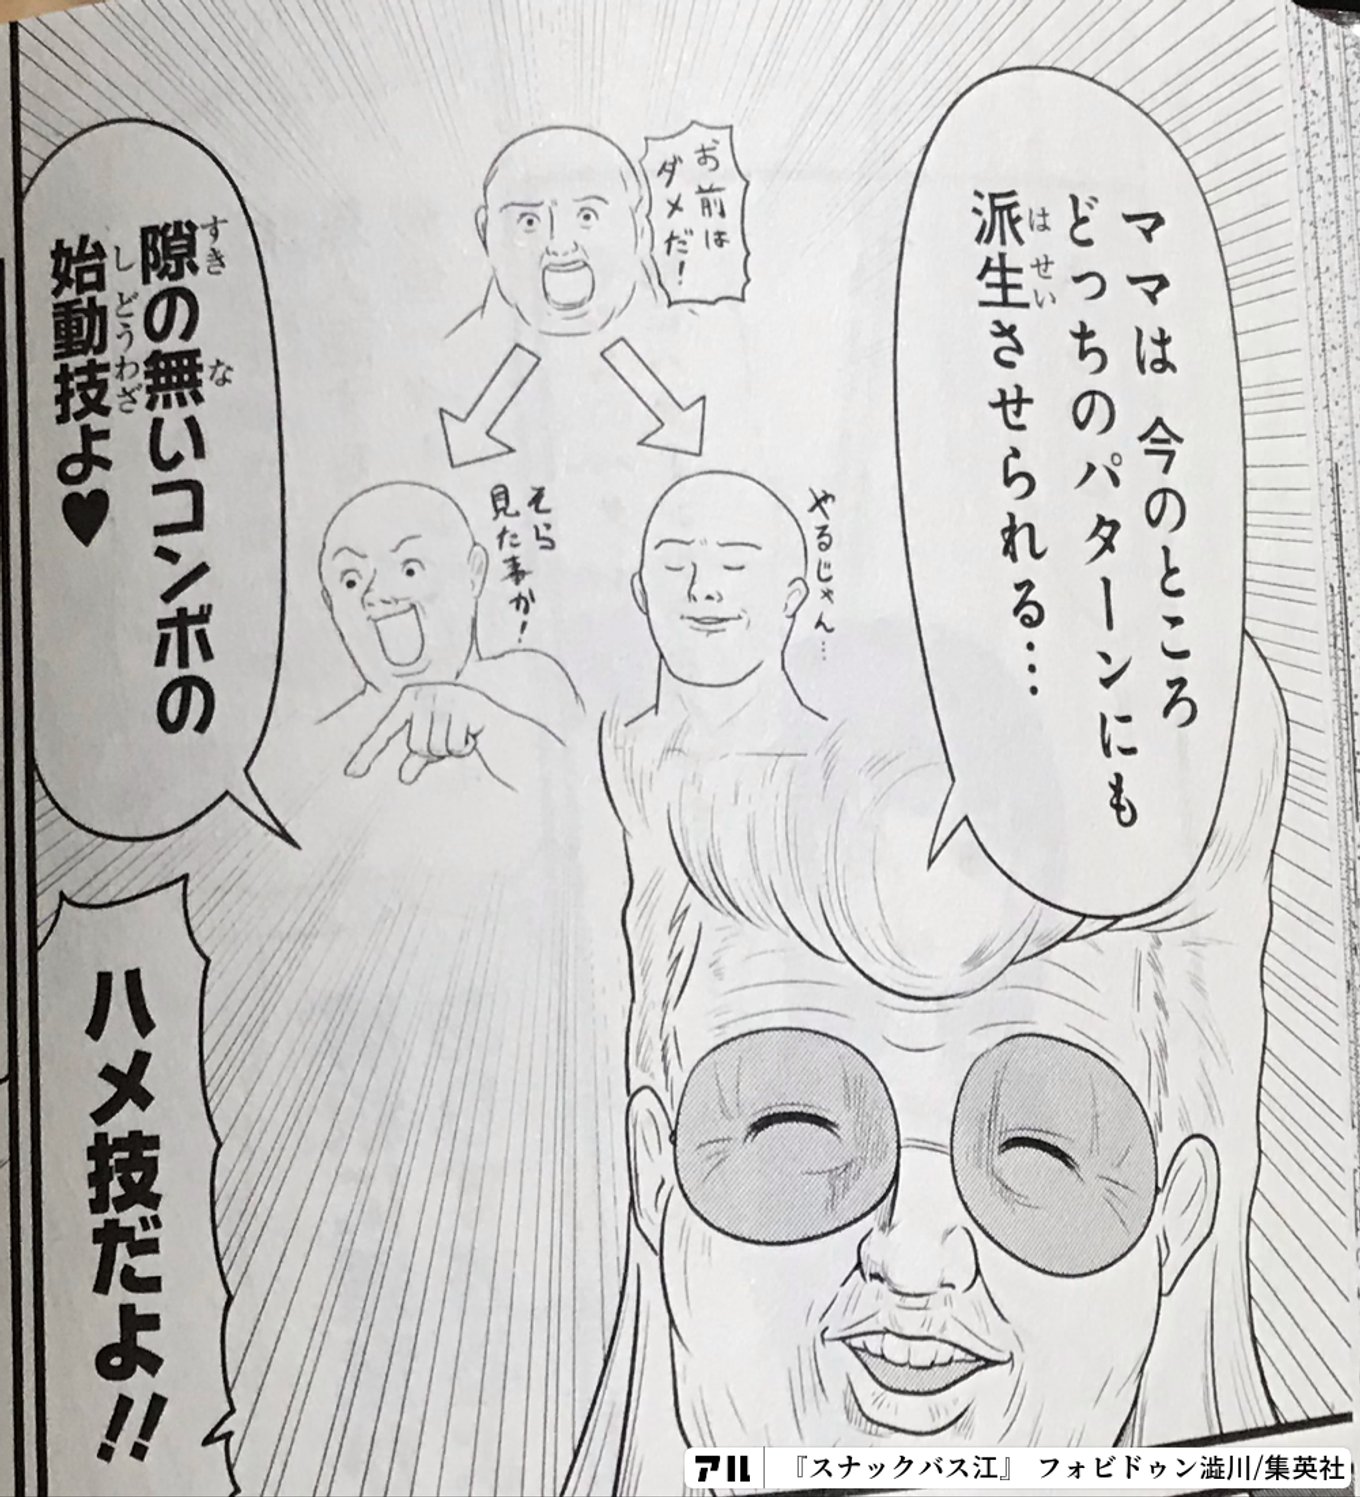 ママは 今のところ
どっちのパターンにも
派生させられる…
はせい
お前は
ダメだ!
やるじゃん…
そら
見た事か!
隙の無いコンボの
すき
な
始動技よ♥
しどうわざ
ハメ技だよ!!
アル
『スナックバス江』 フォビドゥン澁川/集英社